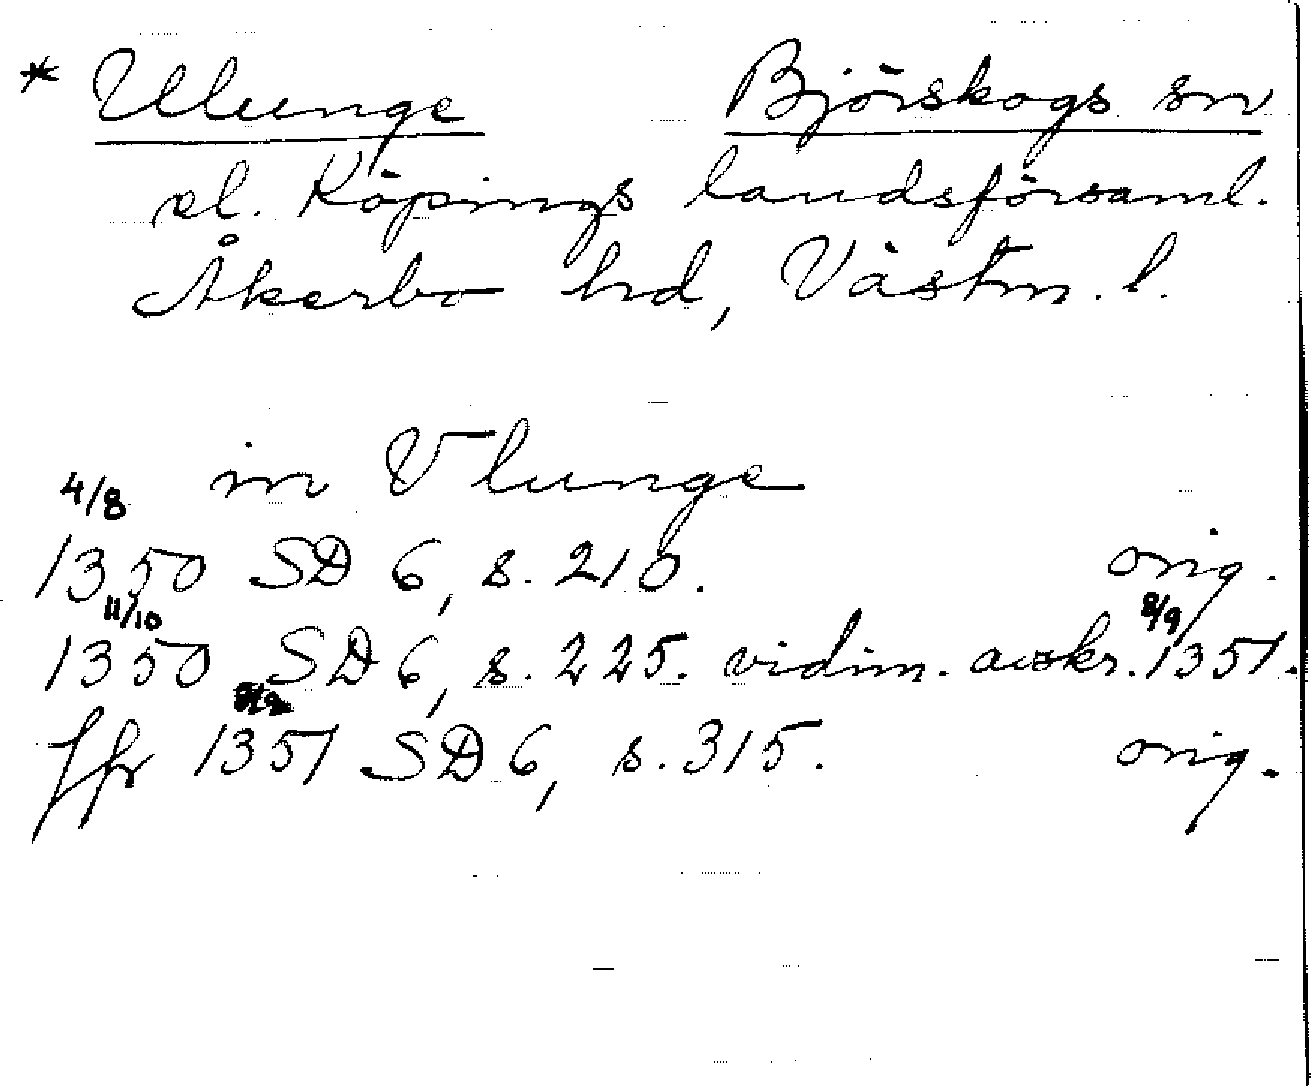 * Ulunge Björskogs sn
el. Köpings landsförsaml.
Åkerbo hd, Västm. l.
in Vlunge
4/8
1350 SD 6, s. 210. orig.
11/10 8/9
1350 SD 6, s. 225. vidim. avskr. 1351.
Jfr 1351 SD 6, s. 315. orig.